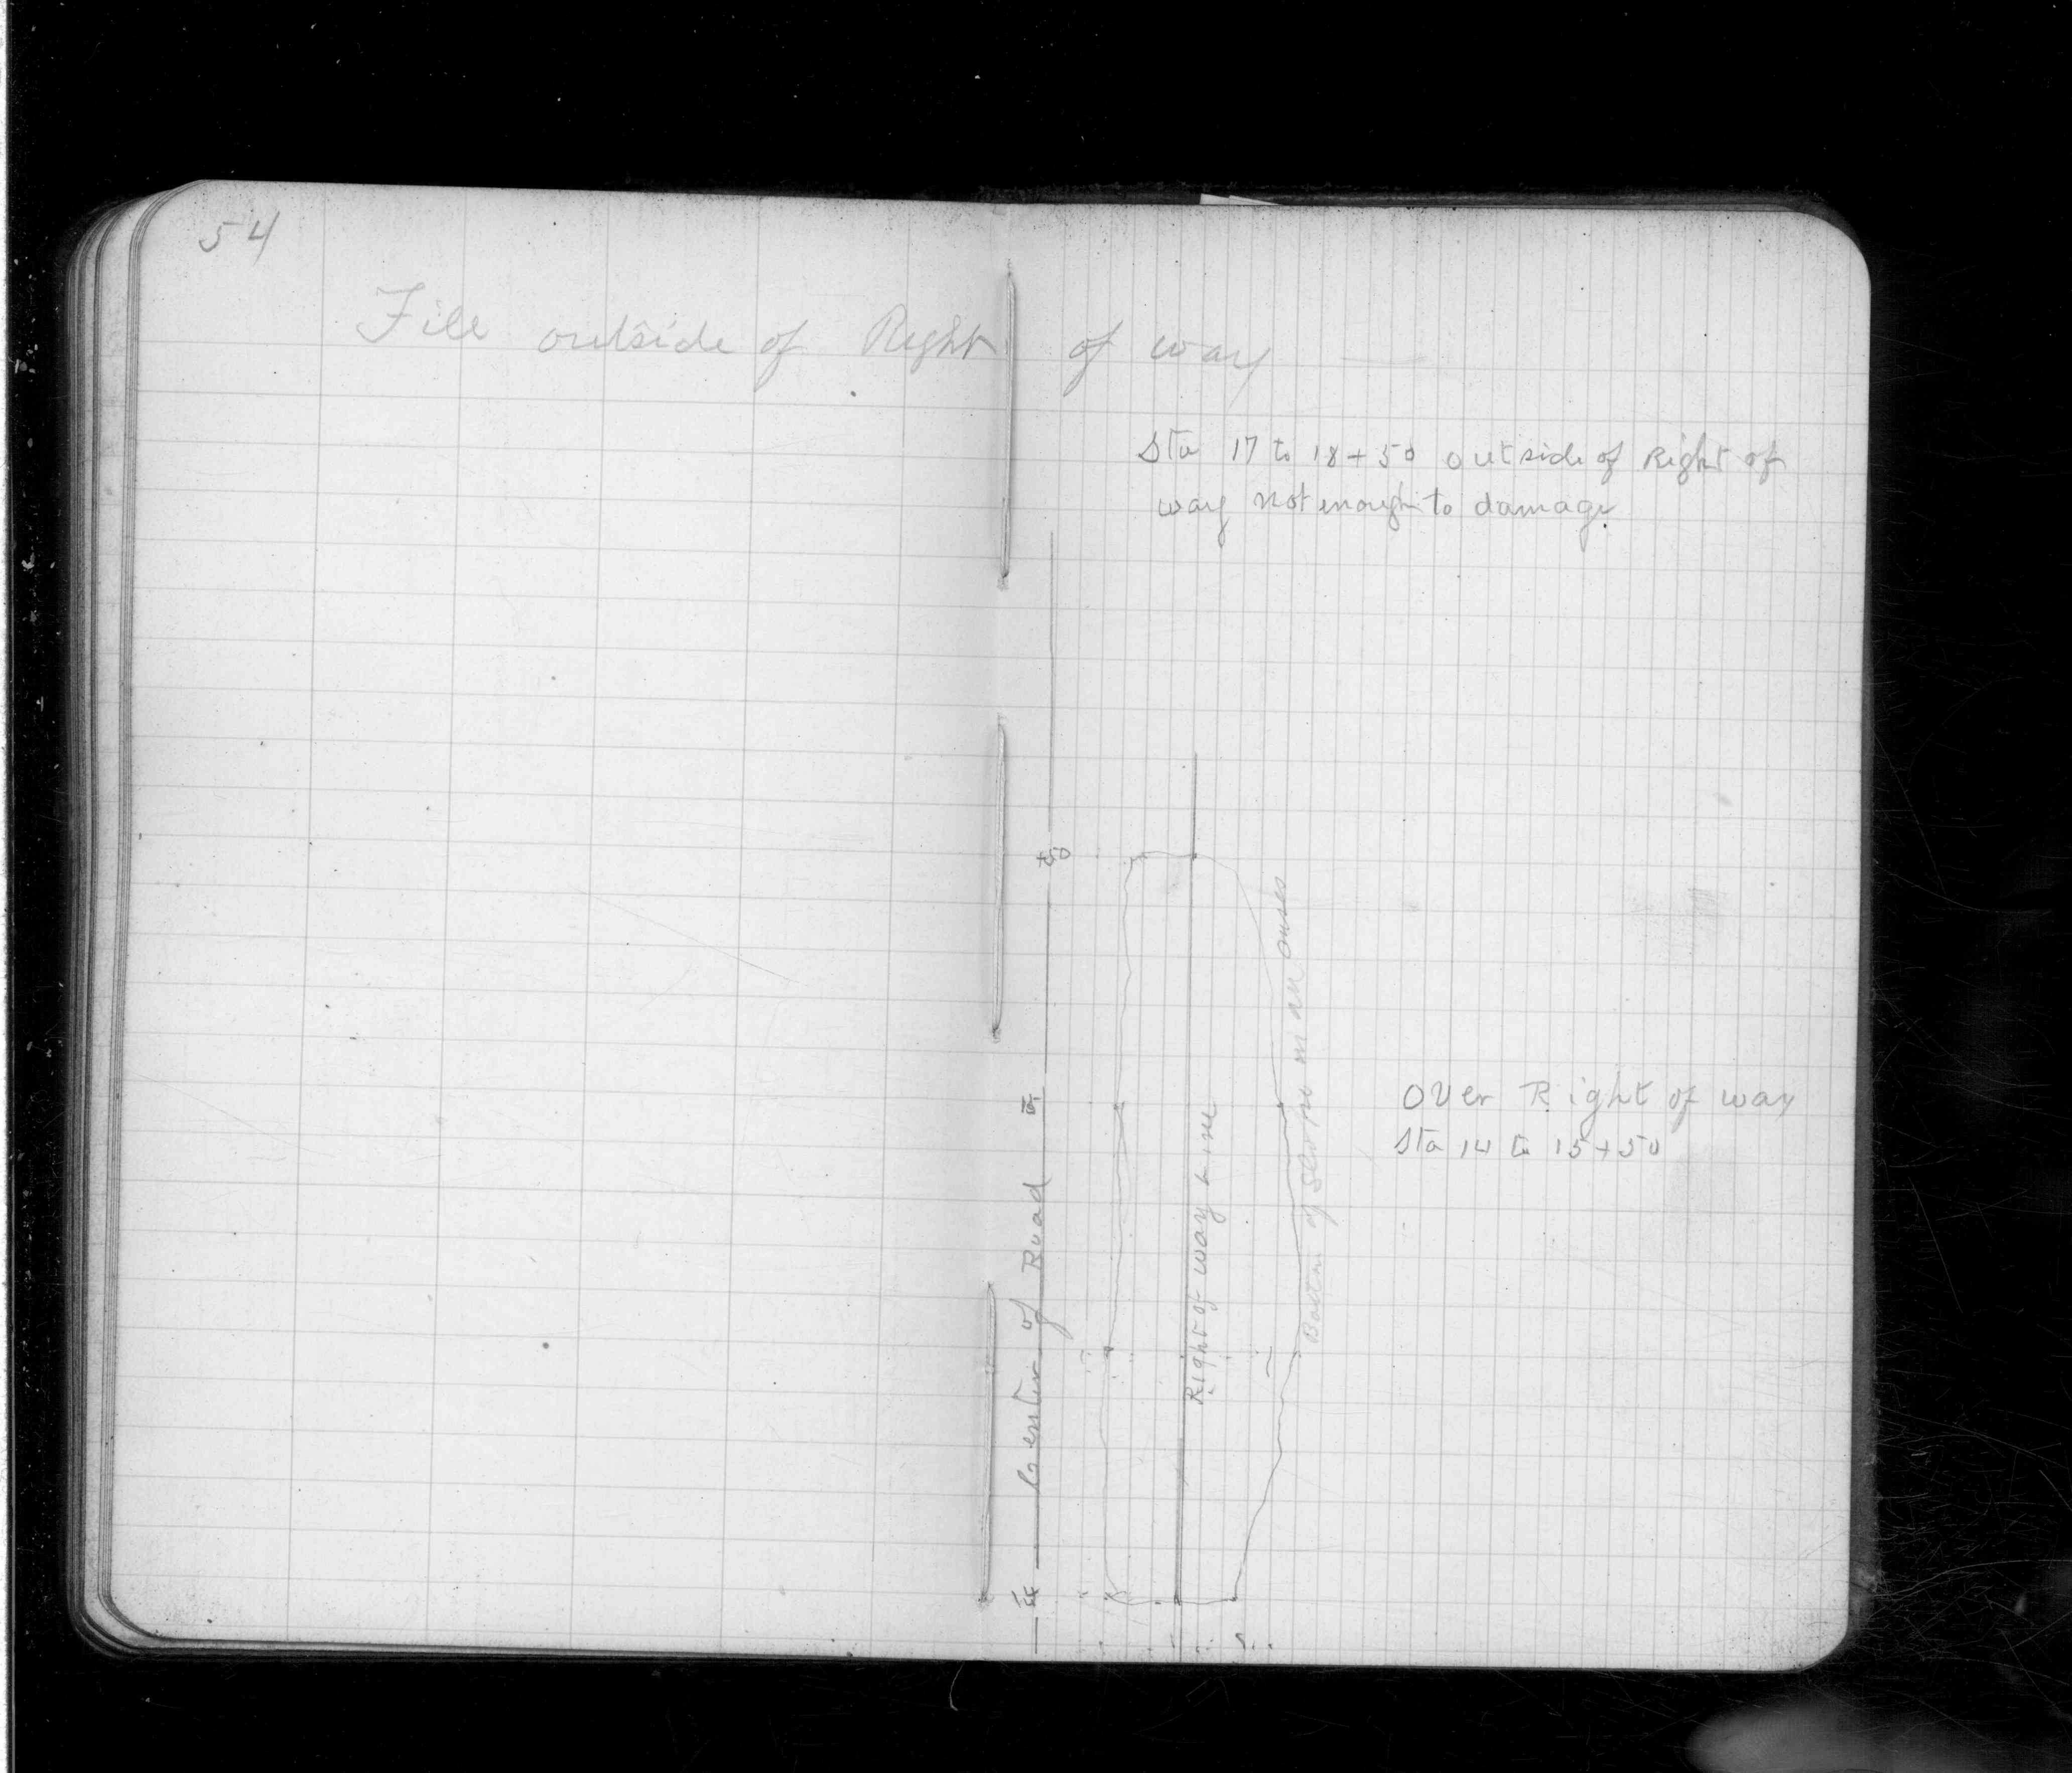 54
Fill outside of Right of way
Sta 17 to 18+50 outside of Right of
way not enough to damage.
+50
Over Right of way
Sta 14 to 15+50
15
Center of Road
Right of way Line
of Slope in all
14